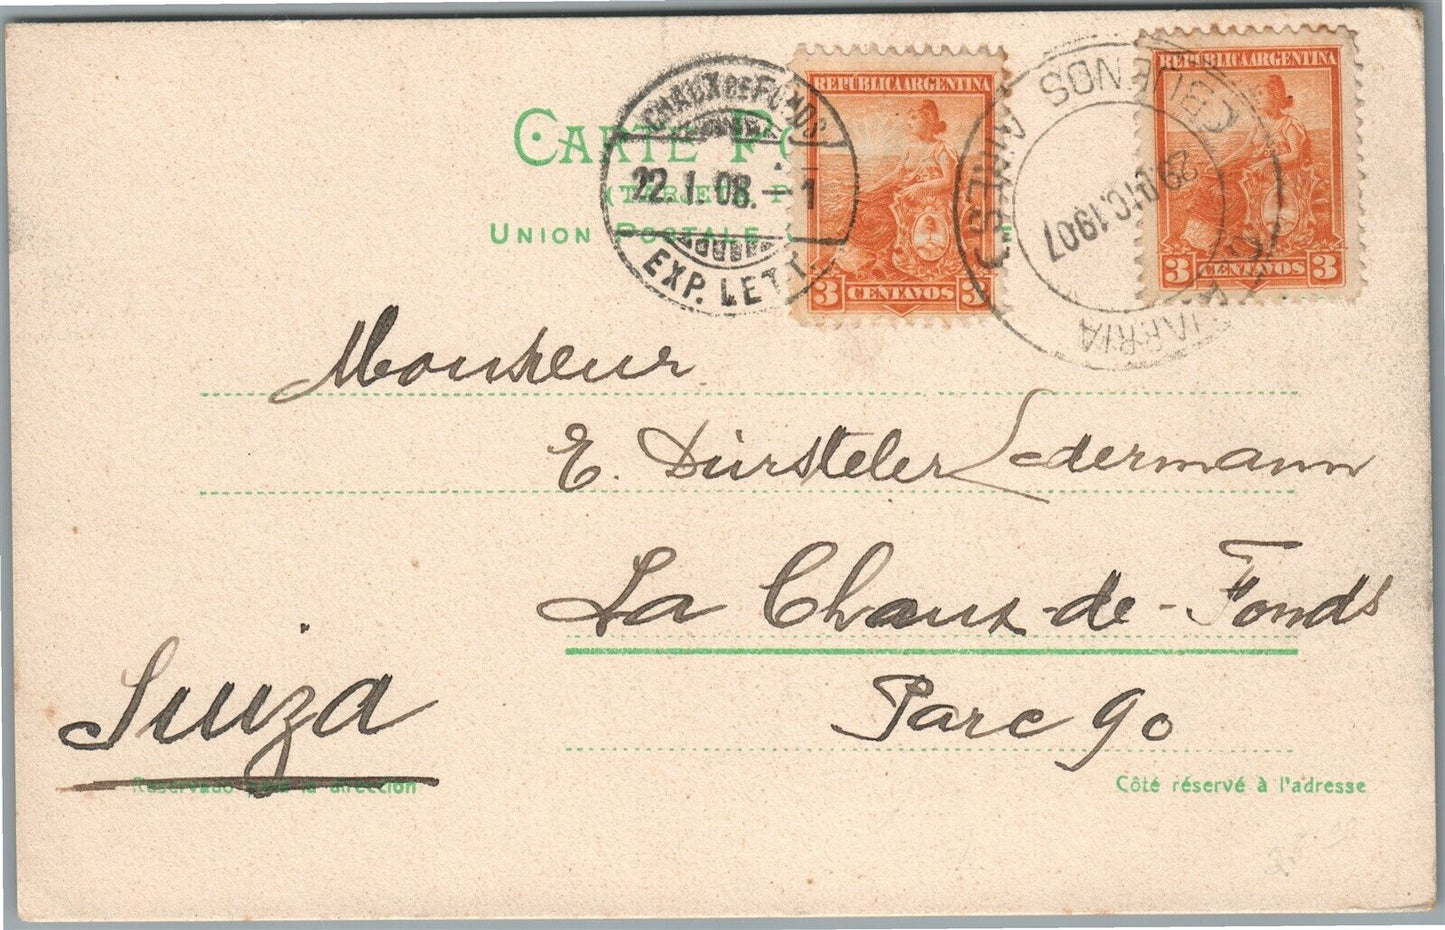 CARTE PO
(TARJETA P
UNION POSTALE
CHAUX DE FONDS
22.I.08.–1
EXP. LETT.
REPÚBLICA ARGENTINA
3 CENTAVOS 3
29 DIC. 1907
REPÚBLICA ARGENTINA
3 CENTAVOS 3
Monsieur
E. Dürsteler Ledermann
La Chaux-de-Fonds
Suiza
Parc 90
Reservado para la direccion
Côté réservé à l'adresse